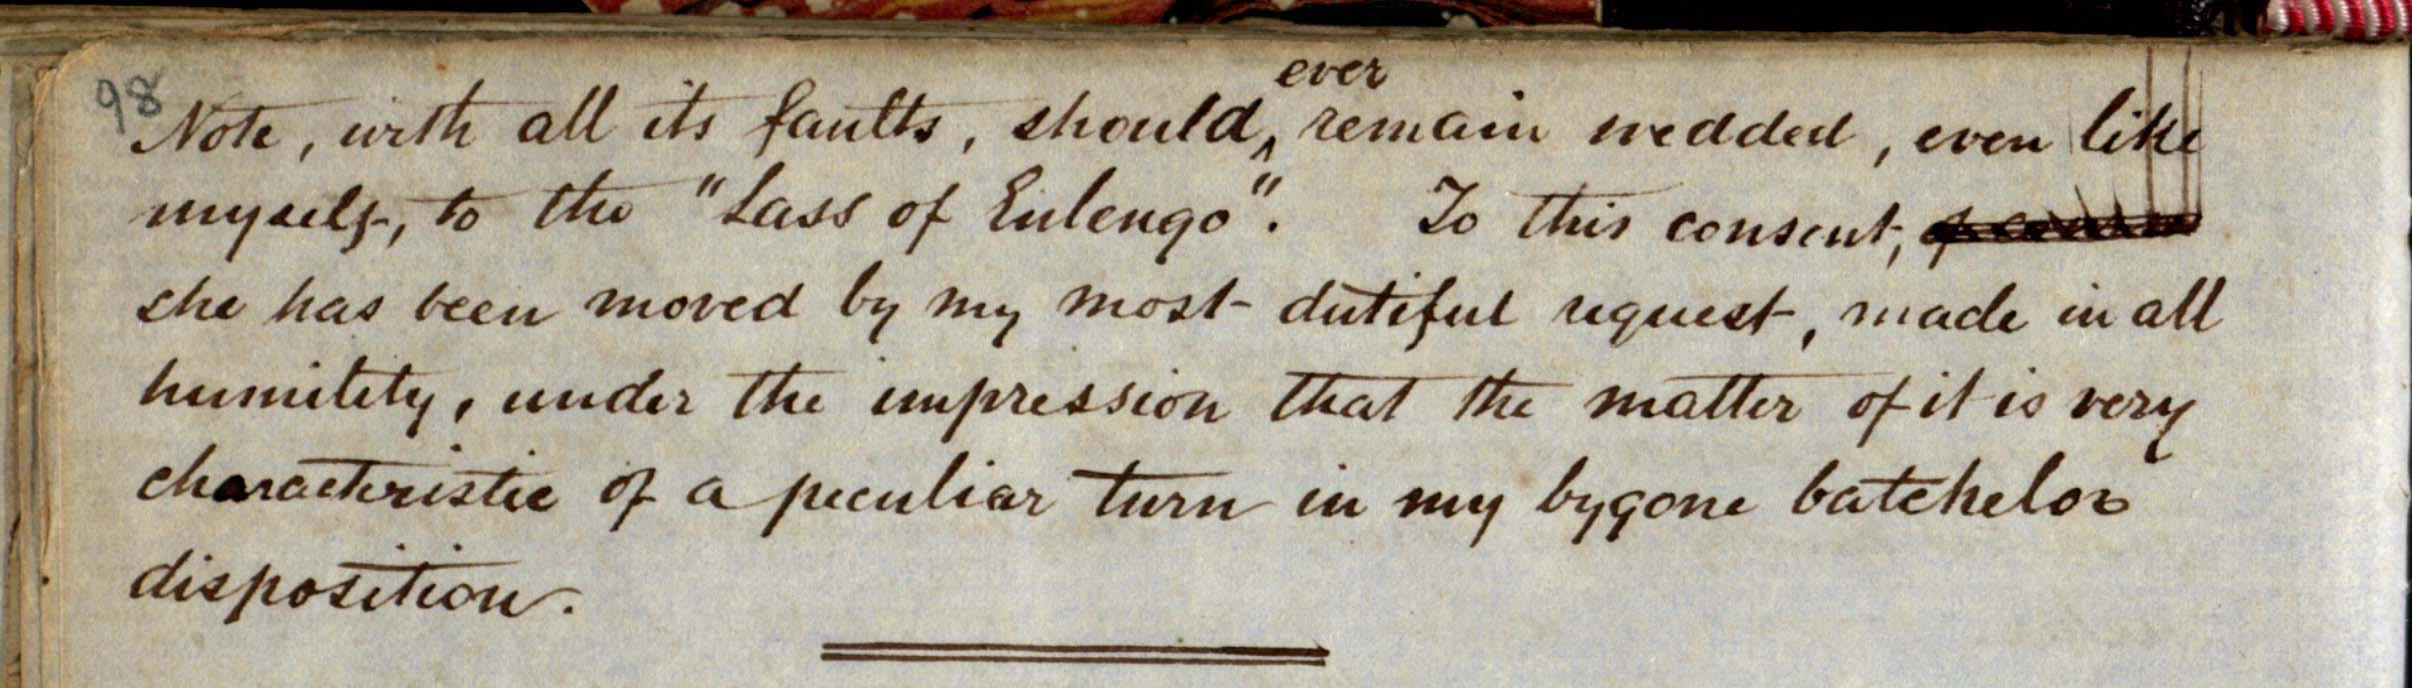 98
Note, with all its faults, should ever remain wedded, even like
myself, to the "Lass of Eulengo". To this consent, of course
she has been moved by my most dutiful request, made in all
humility, under the impression that the matter of it is very
characteristic of a peculiar turn in my bygone batchelor
disposition.